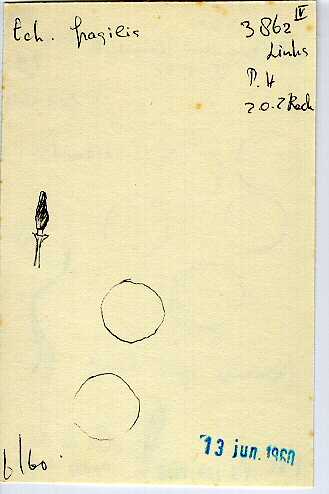 Ech. fragilis
3862 IV
Links
P. H
6/60.
13 jun. 1960